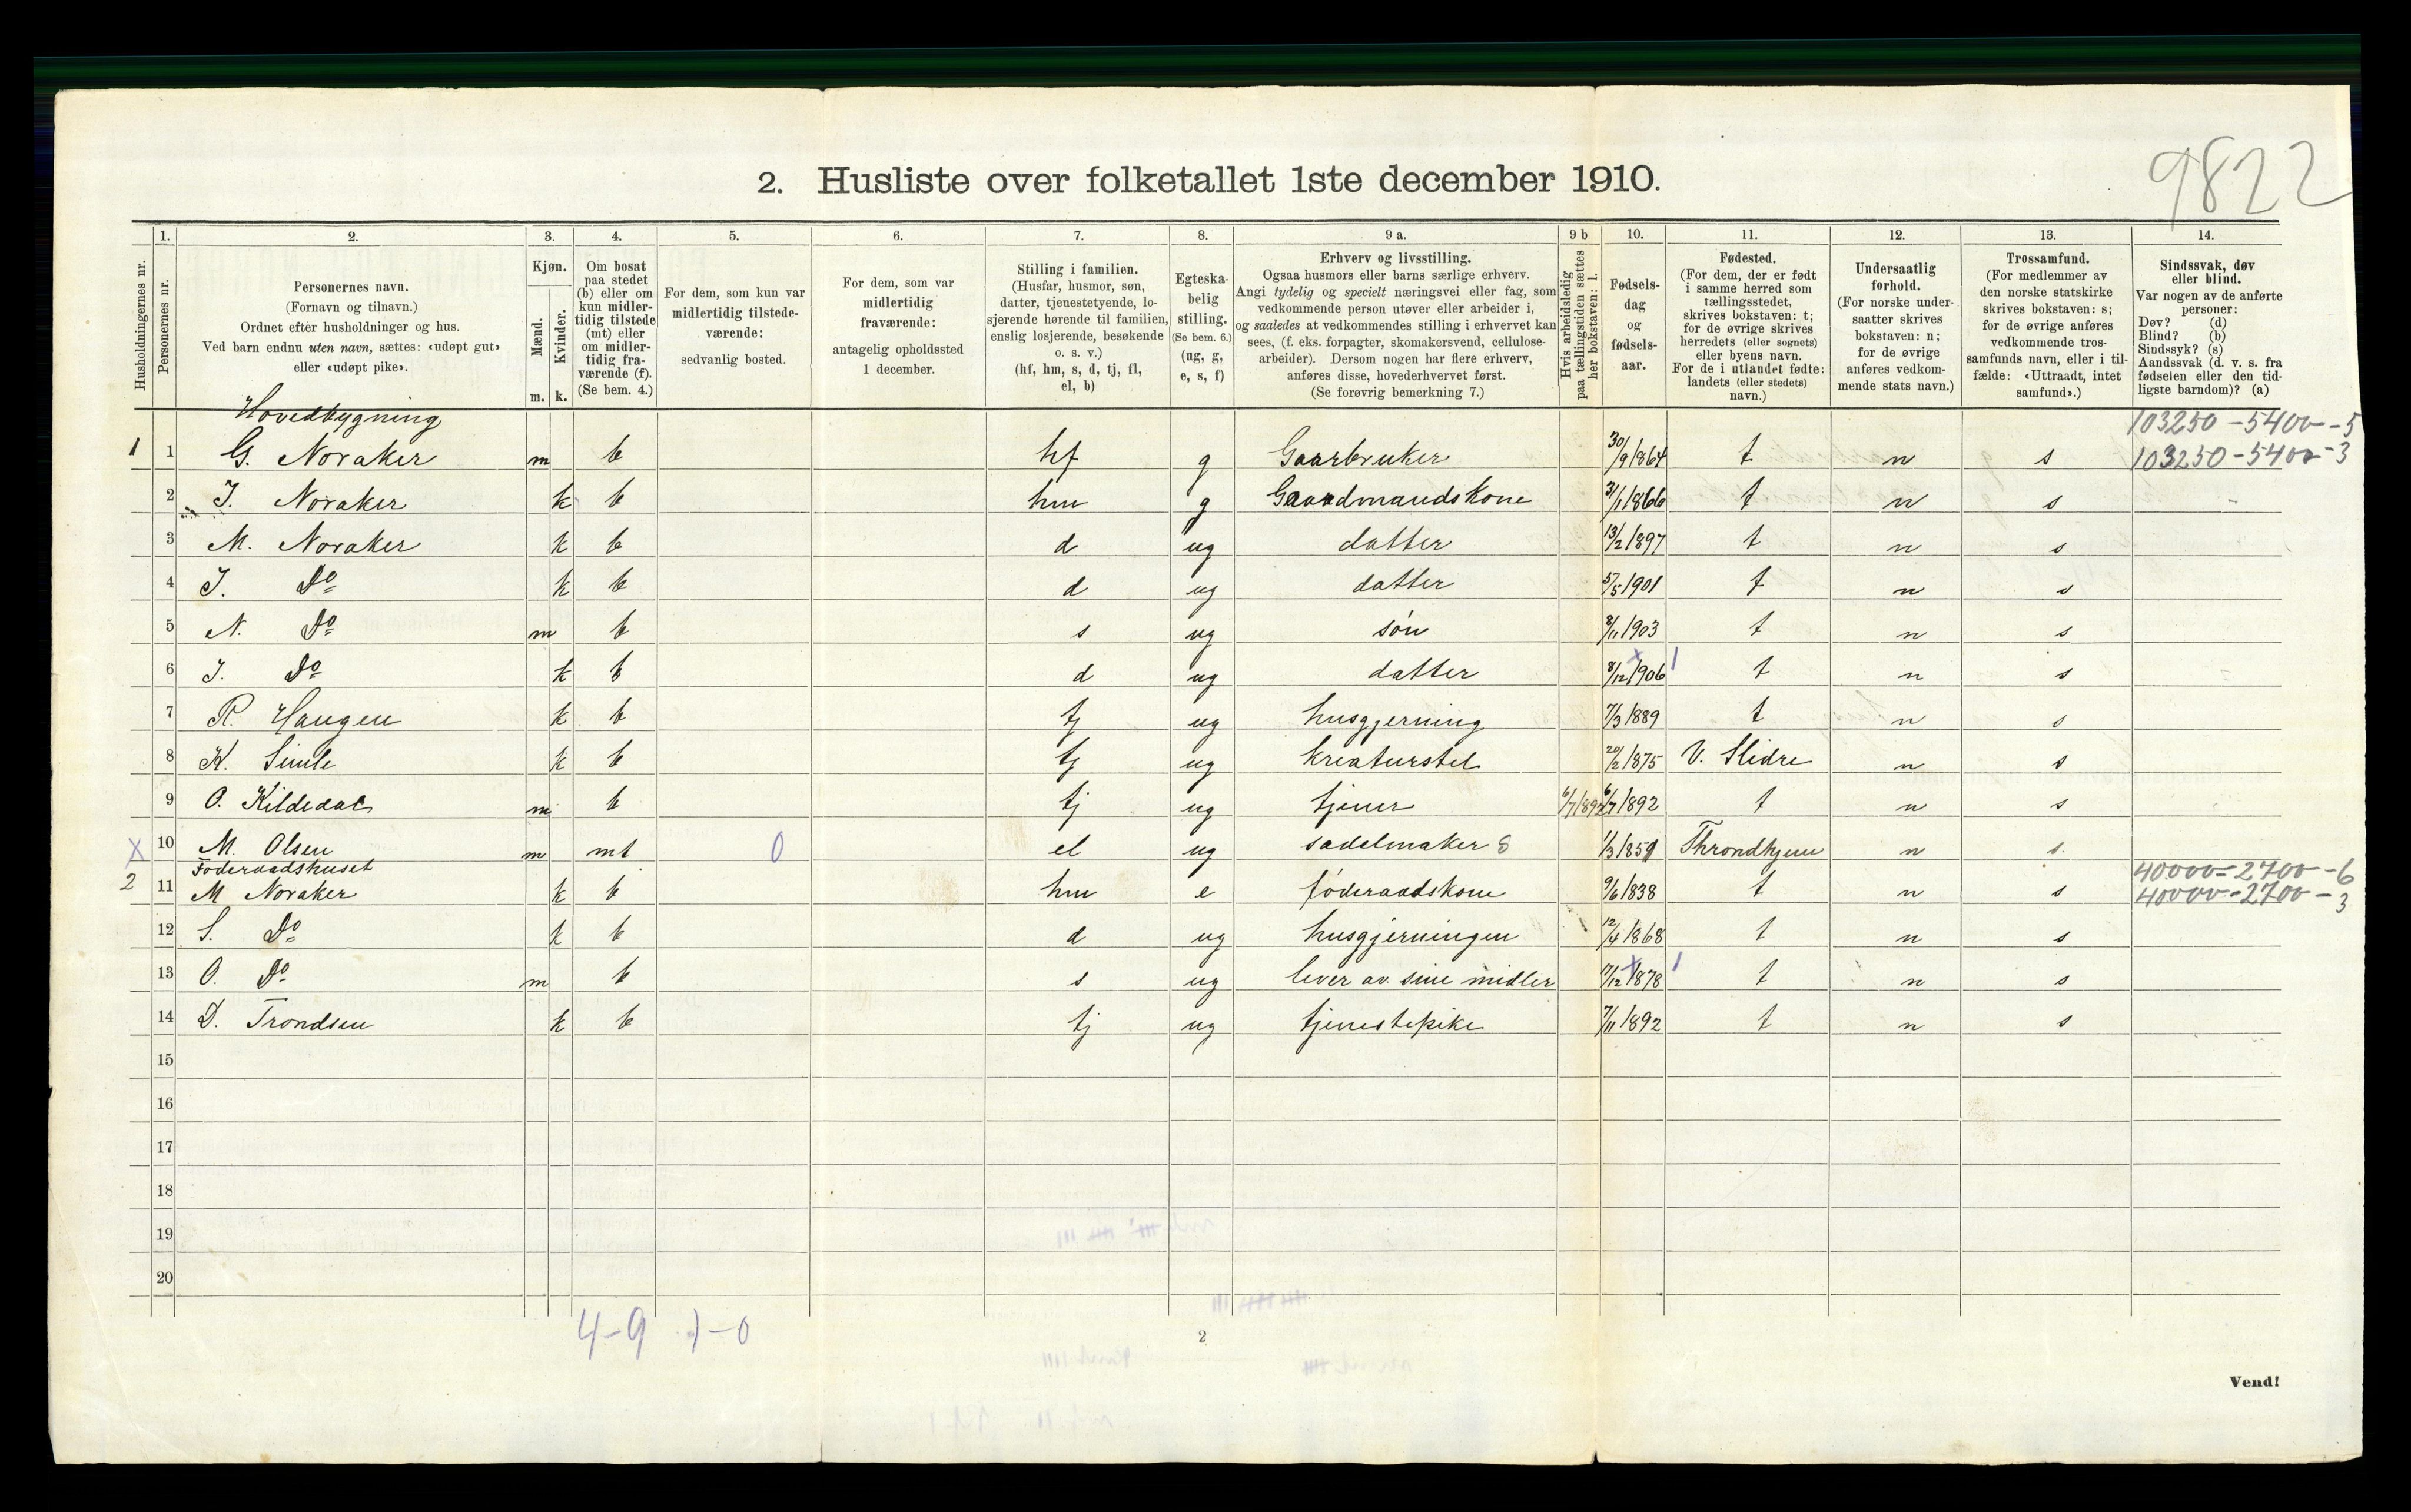 9822
2. Husliste over folketallet 1ste december 1910.
Husholdningernes nr.
1. Personernes nr.
2. Personernes navn.
(Fornavn og tilnavn.)
Ordnet efter husholdninger og hus.
Ved barn endnu uten navn, sættes: «udøpt gut»
eller «udøpt pike».
3. Kjøn.
Mænd. m.
Kvinder. k.
4. Om bosat
paa stedet
(b) eller om
kun midler-
tidig tilstede
(mt) eller
om midler-
tidig fra-
værende (f).
(Se bem. 4.)
5. For dem, som kun var
midlertidig tilstede-
værende:
sedvanlig bosted.
6. For dem, som var
midlertidig
fraværende:
antagelig opholdssted
1 december.
7. Stilling i familien.
(Husfar, husmor, søn,
datter, tjenestetyende, lo-
sjerende hørende til familien,
enslig losjerende, besøkende
o. s. v.)
(hf, hm, s, d, tj, fl,
el, b)
8. Egteska-
belig
stilling.
(Se bem. 6.)
(ug, g,
e, s, f)
9 a. Erhverv og livsstilling.
Ogsaa husmors eller barns særlige erhverv.
Angi tydelig og specielt næringsvei eller fag, som
vedkommende person utøver eller arbeider i,
og saaledes at vedkommendes stilling i erhvervet kan
sees, (f. eks. forpagter, skomakersvend, cellulose-
arbeider). Dersom nogen har flere erhverv,
anføres disse, hovederhvervet først.
(Se forøvrig bemerkning 7.)
9 b Hvis arbeidsledig
paa tællingstiden sættes
her bokstaven: l.
10. Fødsels-
dag
og
fødsels-
aar.
11. Fødested.
(For dem, der er født
i samme herred som
tællingsstedet,
skrives bokstaven: t;
for de øvrige skrives
herredets (eller sognets)
eller byens navn.
For de i utlandet fødte:
landets (eller stedets)
navn.)
12. Undersaatlig
forhold.
(For norske under-
saatter skrives
bokstaven: n;
for de øvrige
anføres vedkom-
mende stats navn.)
13. Trossamfund.
(For medlemmer av
den norske statskirke
skrives bokstaven: s;
for de øvrige anføres
vedkommende tros-
samfunds navn, eller i til-
fælde: «Uttraadt, intet
samfund».)
14. Sindssvak, døv
eller blind.
Var nogen av de anførte
personer:
Døv? (d)
Blind? (b)
Sindssyk? (s)
Aandssvak (d. v. s. fra
fødselen eller den tid-
ligste barndom)? (a)
Hovedbygning
103250-5400-5
1 1 G. Noraker m b hf g Gaarbruker 30/9 1864 t n s 103250-5400-3
2 I. Noraker k b hm g Gaardmandskone 31/1 1866 t n s
3 M. Noraker k b d ug datter 13/2 1897 t n s
4 I. Do k b d ug datter 5/5 1901 t n s
5 N. Do m b s ug søn 8/11 1903 t n s
6 I. Do k b d ug datter 8/12 1906 t n s
7 R. Haugen k b tj ug husgjerning 7/3 1889 t n s
8 K. Simle k b tj ug kreaturstel 20/2 1875 V. Slidre n s
9 O. Kildedal m b tj ug tjener 6/7 1892 6/7 1892 t n s
X 10 M. Olsen m mt 0 el ug sadelmaker 1/3 1859 Throndhjem n s.
Föderaadshuset
40000-2700-6
2 11 M Noraker k b hm e föderaadskone 9/6 1838 t n s 40000-2700-3
12 S. Do k b d ug husgjerningen 12/4 1868 t n s
13 O. Do m b s ug lever av sine midler 17/12 1878 t n s
14 D. Trondsen k b tj ug tjenestepike 7/11 1892 t n s
15
16
17
18
19
20
4-9 1-0
2
Vend!